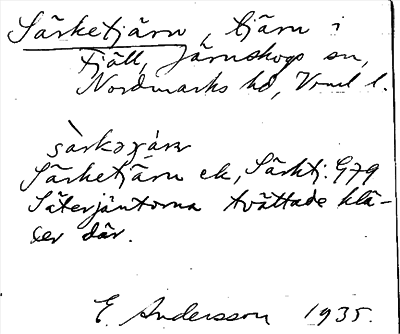 Särketjärn, tjärn i
Fjäll, Järnskogs sn,
Nordmarks hd, Vrml l.
Särketjärn ek, Särktj. G79
Säterjäntorna tvättade klä-
der där.
E. Andersson 1935.